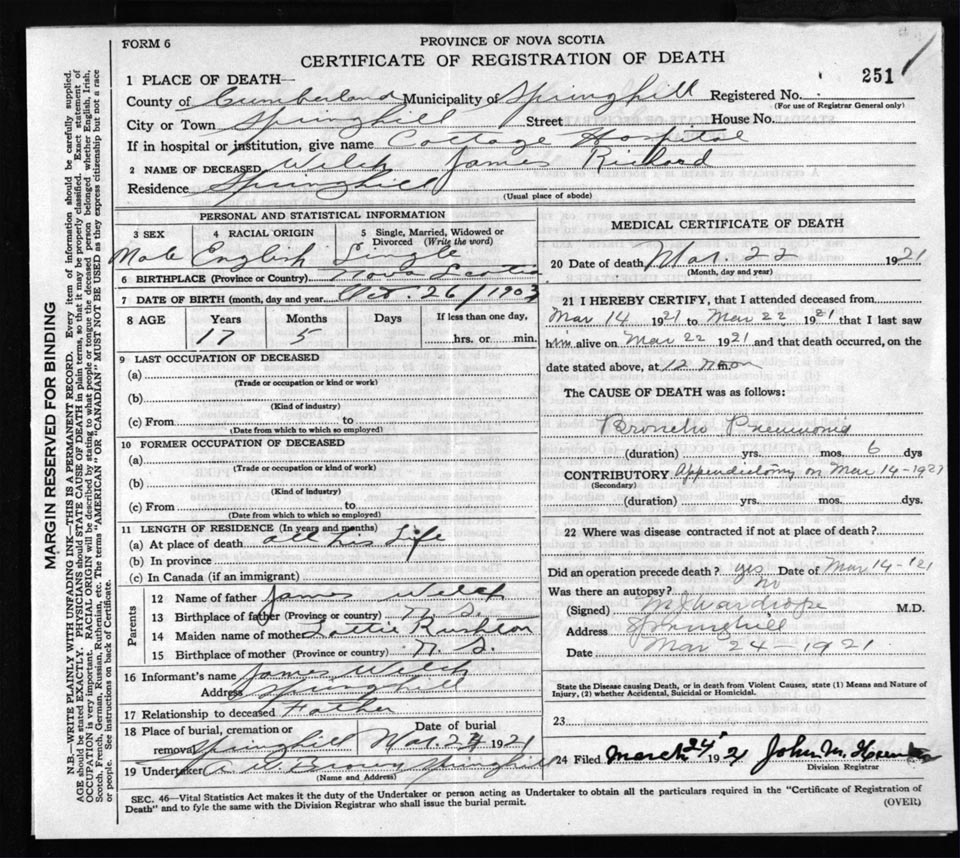 FORM 6
PROVINCE OF NOVA SCOTIA
CERTIFICATE OF REGISTRATION OF DEATH
251
1 PLACE OF DEATH—
County of Cumberland Municipality of Springhill Registered No.
(For use of Registrar General only)
City or Town Springhill Street House No.
If in hospital or institution, give name Cottage Hospital
2 NAME OF DECEASED Welch James Rickard
Residence Springhill
(Usual place of abode)
PERSONAL AND STATISTICAL INFORMATION
3 SEX 4 RACIAL ORIGIN 5 Single, Married, Widowed or Divorced (Write the word)
Male English Single
6 BIRTHPLACE (Province or Country) Nova Scotia
7 DATE OF BIRTH (month, day and year) Oct. 26/1903
8 AGE Years Months Days If less than one day,
17 5 hrs. or min.
9 LAST OCCUPATION OF DECEASED
(a)
(Trade or occupation or kind or work)
(b)
(Kind of industry)
(c) From to
(Date from which to which so employed)
10 FORMER OCCUPATION OF DECEASED
(a)
(Trade or occupation or kind of work)
(b)
(Kind of industry)
(c) From to
(Date from which to which so employed)
11 LENGTH OF RESIDENCE (In years and months)
(a) At place of death all his Life
(b) In province
(c) In Canada (if an immigrant)
Parents
12 Name of father James Welch
13 Birthplace of father (Province or country) N. S.
14 Maiden name of mother Lottie Rushton
15 Birthplace of mother (Province or country) N. S.
16 Informant's name James Welch
Address Springhill
17 Relationship to deceased Father
18 Place of burial, cremation or removal Date of burial
Springhill Mar. 1921
19 Undertaker A. Brown Springhill
(Name and Address)
MEDICAL CERTIFICATE OF DEATH
20 Date of death Mar. 22 1921
(Month, day and year)
21 I HEREBY CERTIFY, that I attended deceased from
Mar 14 1921 to Mar 22 1921 that I last saw
him alive on Mar 22 1921 and that death occurred, on the
date stated above, at 12 noon m.
The CAUSE OF DEATH was as follows:
Broncho Pneumonia
(duration) yrs. mos. 6 dys
CONTRIBUTORY Appendictomy on Mar 14-1921
(Secondary)
(duration) yrs. mos. dys.
22 Where was disease contracted if not at place of death?
Did an operation precede death? yes Date of Mar 14-'21
Was there an autopsy? no
(Signed) M J Wardrope M.D.
Address Springhill
Date Mar 24-1921
State the Disease causing Death, or in death from Violent Causes, state (1) Means and Nature of
Injury, (2) whether Accidental, Suicidal or Homicidal.
23
24 Filed March 24 1921 John M.
Division Registrar
SEC. 46—Vital Statistics Act makes it the duty of the Undertaker or person acting as Undertaker to obtain all the particulars required in the "Certificate of Registration of
Death" and to fyle the same with the Division Registrar who shall issue the burial permit.
(OVER)
MARGIN RESERVED FOR BINDING
N.B.—WRITE PLAINLY WITH UNFADING INK—THIS IS A PERMANENT RECORD. Every item of information should be carefully supplied.
AGE should be stated EXACTLY. PHYSICIANS should STATE CAUSE OF DEATH in plain terms, so that it may be properly classified. Exact statement of
OCCUPATION is very important. RACIAL ORIGIN will be described by stating to what people or tongue the deceased person belonged whether English, Irish,
Scotch, French, German, Russian, Ruthenian, etc. The terms "AMERICAN" OR "CANADIAN" MUST NOT BE USED as they express citizenship but not a race
or people. See instructions on back of Certificate.